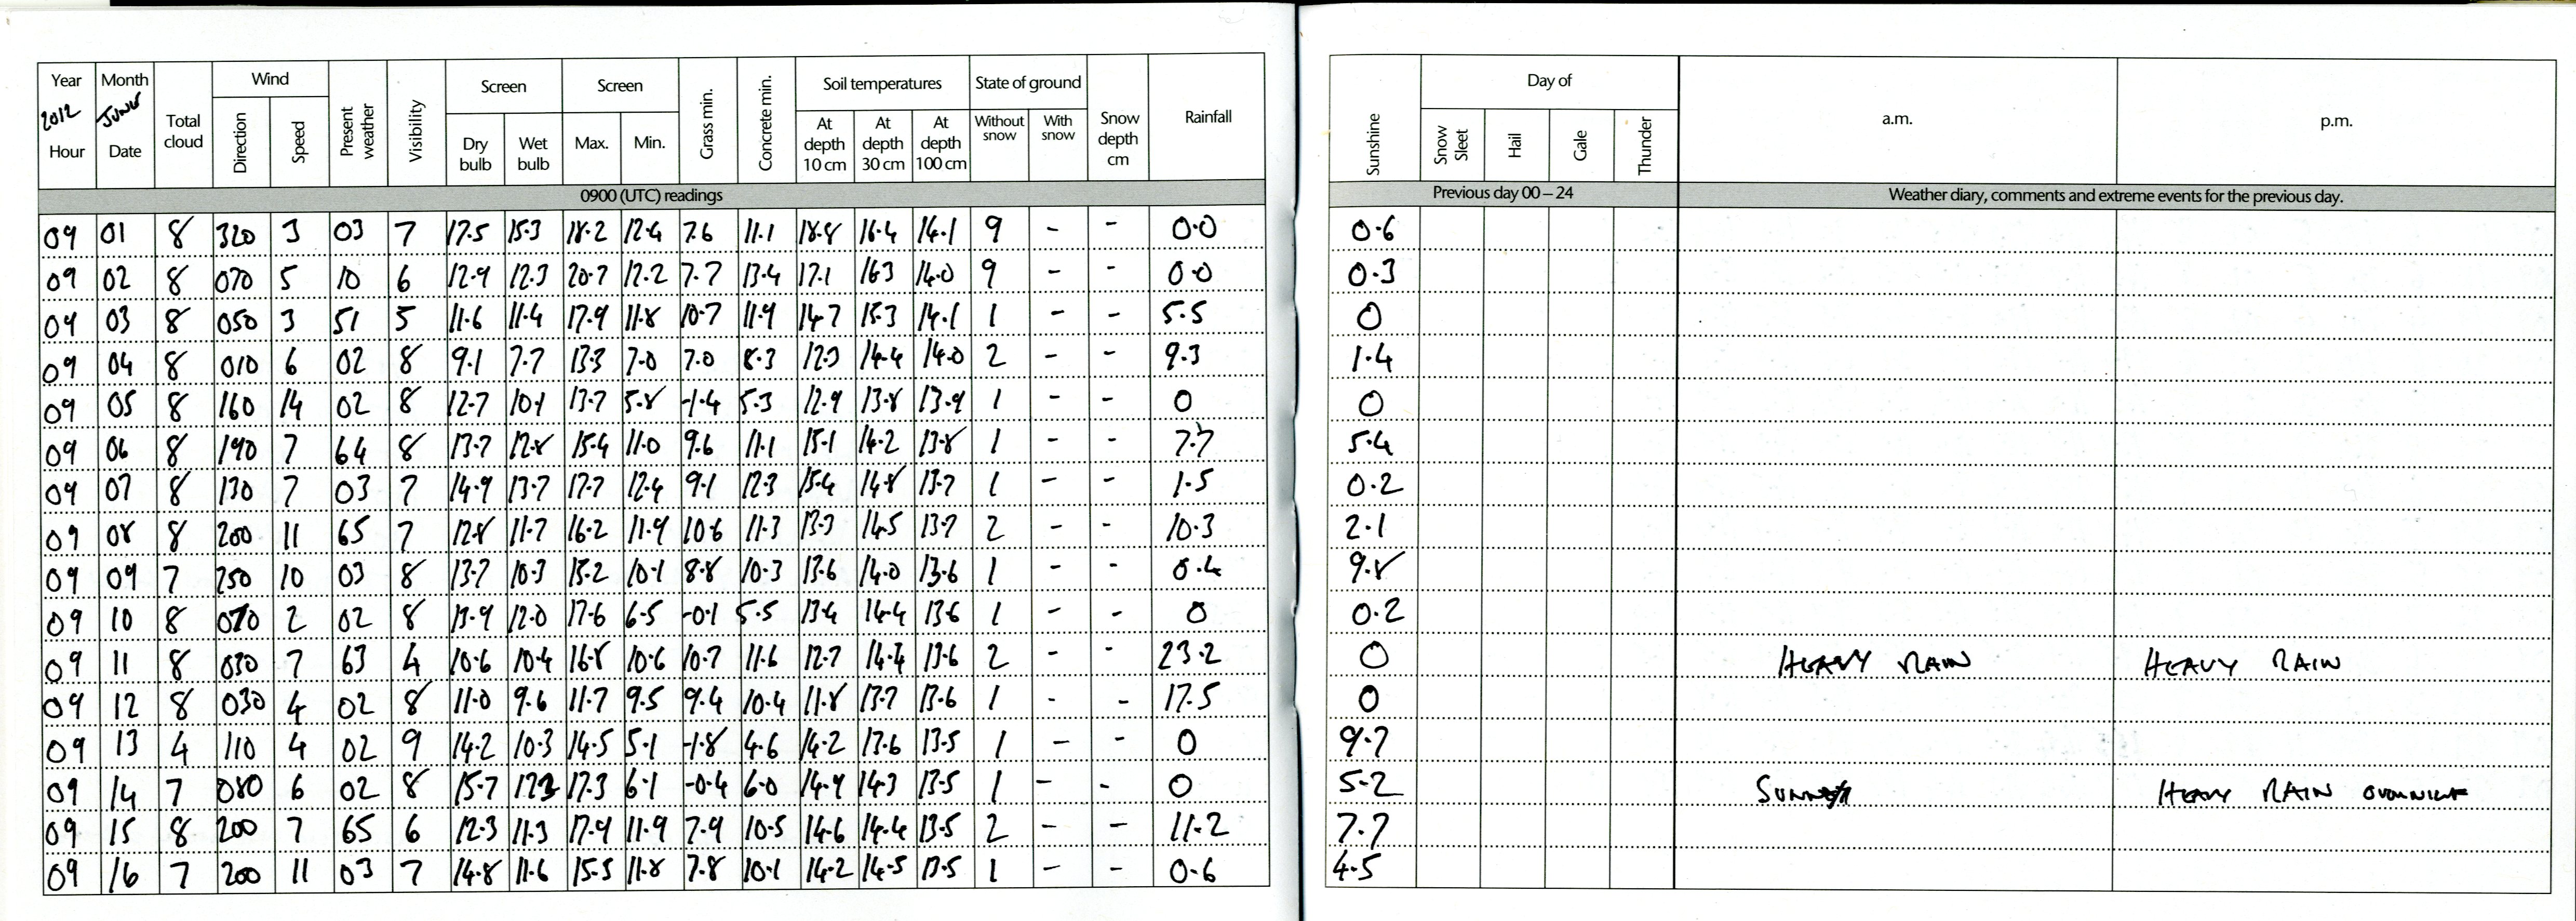 Year Month Total cloud Wind Present weather Visibility Screen Screen Grass min. Concrete min. Soil temperatures State of ground Snow depth cm Rainfall Sunshine Day of a.m. p.m.
2012 JUNE Direction Speed Dry bulb Wet bulb Max. Min. At depth 10 cm At depth 30 cm At depth 100 cm Without snow With snow Snow Sleet Hail Gale Thunder
Hour Date
0900 (UTC) readings Previous day 00 – 24 Weather diary, comments and extreme events for the previous day.
09 01 8 320 3 03 7 17.5 15.3 18.2 12.4 7.6 11.1 18.8 16.4 14.1 9 - - 0.0 0.6
09 02 8 070 5 10 6 12.9 12.3 20.7 12.2 7.7 13.4 17.1 163 14.0 9 - - 0.0 0.3
09 03 8 050 3 51 5 11.6 11.4 17.9 11.8 10.7 11.9 14.7 15.3 14.1 1 - - 5.5 0
09 04 8 010 6 02 8 9.1 7.7 13.3 7.0 7.0 8.3 12.9 14.4 14.0 2 - - 9.3 1.4
09 05 8 160 14 02 8 12.7 10.1 13.7 5.8 -1.4 5.3 12.9 13.8 13.9 1 - - 0 0
09 06 8 190 7 64 8 13.7 12.8 15.4 11.0 9.6 11.1 15.1 14.2 13.8 1 - - 7.7 5.4
09 07 8 130 7 03 7 14.9 13.7 17.7 12.4 9.1 12.3 15.4 14.8 13.7 1 - - 1.5 0.2
09 08 8 200 11 65 7 12.8 11.7 16.2 11.9 10.6 11.3 13.9 14.5 13.7 2 - - 10.3 2.1
09 09 7 250 10 03 8 13.7 10.3 15.2 10.1 8.8 10.3 13.6 14.0 13.6 1 - - 0.4 9.8
09 10 8 070 2 02 8 13.9 12.0 17.6 6.5 -0.1 5.5 13.4 14.4 13.6 1 - - 0 0.2
09 11 8 030 7 63 4 10.6 10.4 16.8 10.6 10.7 11.6 12.7 14.4 13.6 2 - - 23.2 0 HEAVY RAIN HEAVY RAIN
09 12 8 030 4 02 8 11.0 9.6 11.7 9.5 9.4 10.4 11.8 13.7 13.6 1 - - 17.5 0
09 13 4 110 4 02 9 14.2 10.3 14.5 5.1 -1.8 4.6 14.2 13.6 13.5 1 - - 0 9.7
09 14 7 080 6 02 8 15.7 17.3 6.1 -0.4 6.0 14.9 14.3 13.5 1 - - 0 5.2 SUNNY HEAVY RAIN OVERNIGHT
09 15 8 200 7 65 6 12.3 11.3 17.9 11.9 7.9 10.5 14.6 14.4 13.5 2 - - 11.2 7.7
09 16 7 200 11 03 7 14.8 11.6 15.5 11.8 7.8 10.1 14.2 14.5 13.5 1 - - 0.6 4.5